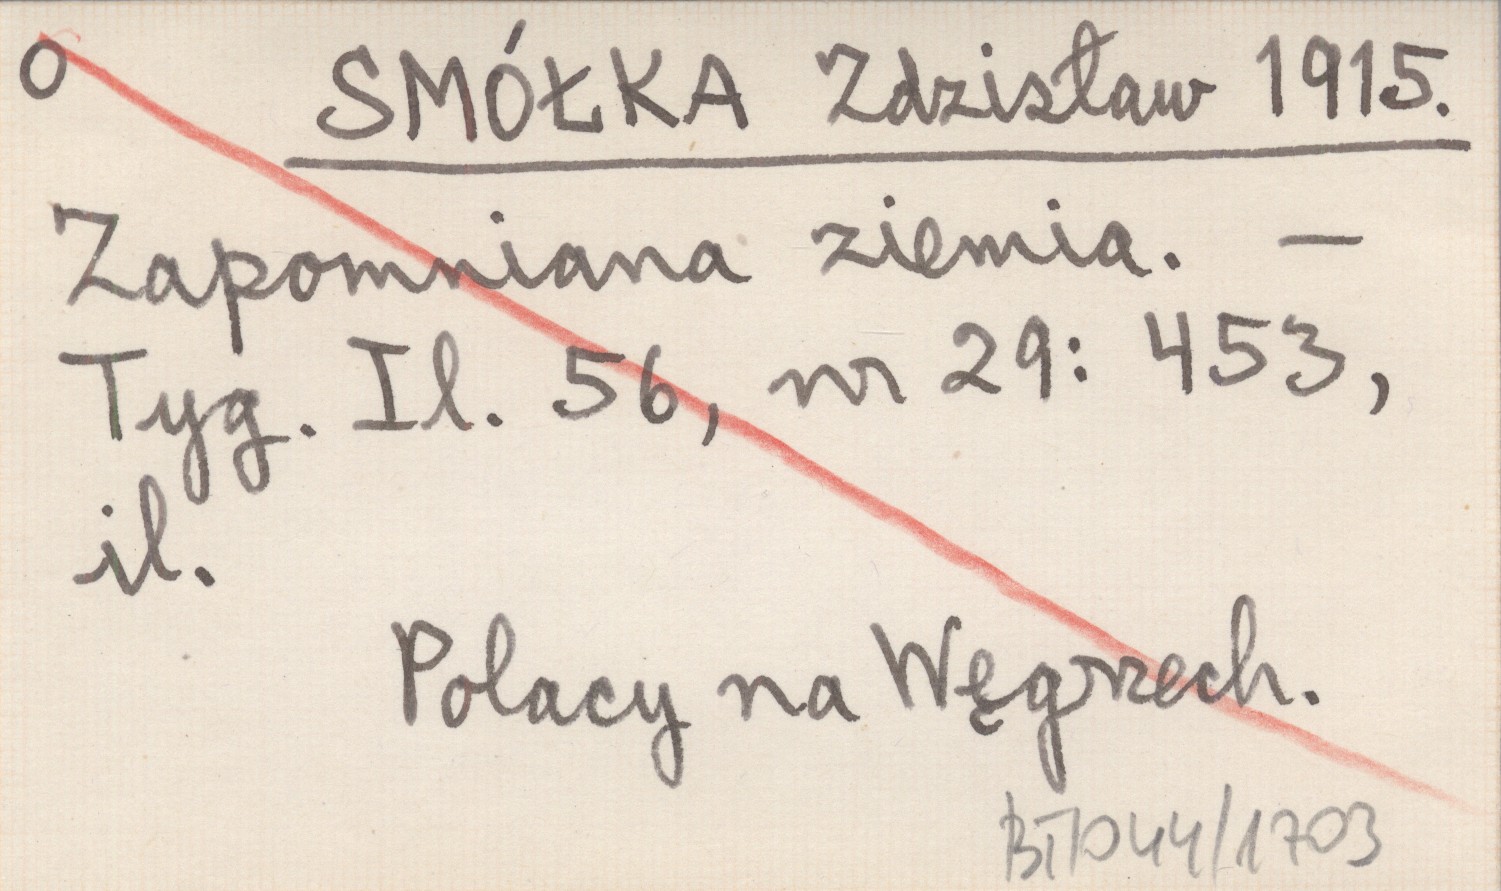 O SMÓŁKA Zdzisław 1915.
Zapomniana ziemia. —
Tyg. Il. 56, nr 29: 453,
il.
Polacy na Węgrzech.
BT/044/1703